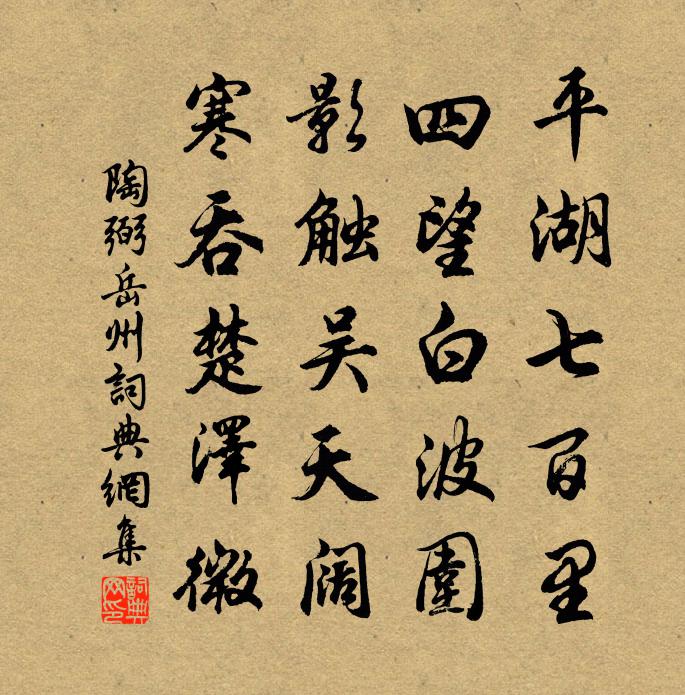 平湖七百里
四望白波圍
影触吴天阔
寒吞楚澤微
陶弼岳州詞典網集
詞典网印